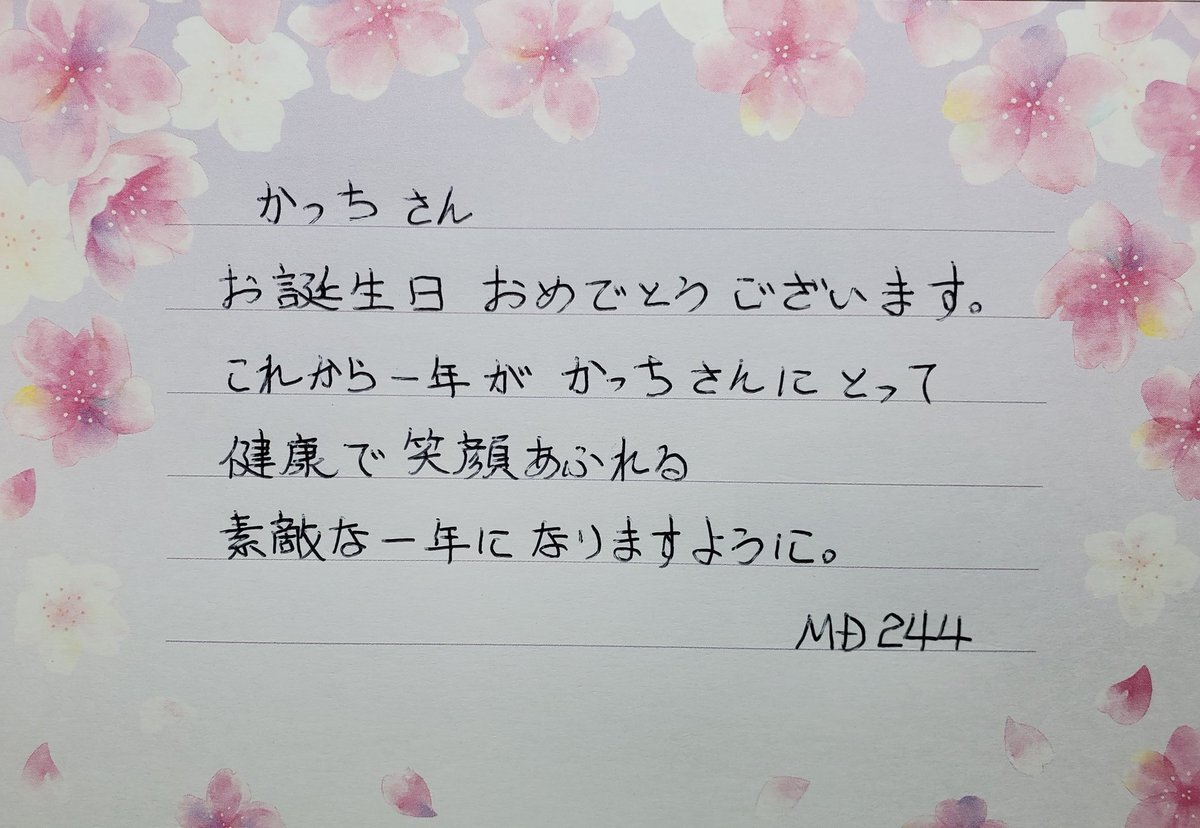 かっちさん
お誕生日 おめでとう ございます。
これから一年が かっちさんにとって
健康で 笑顔あふれる
素敵な一年に なりますように。
MD244